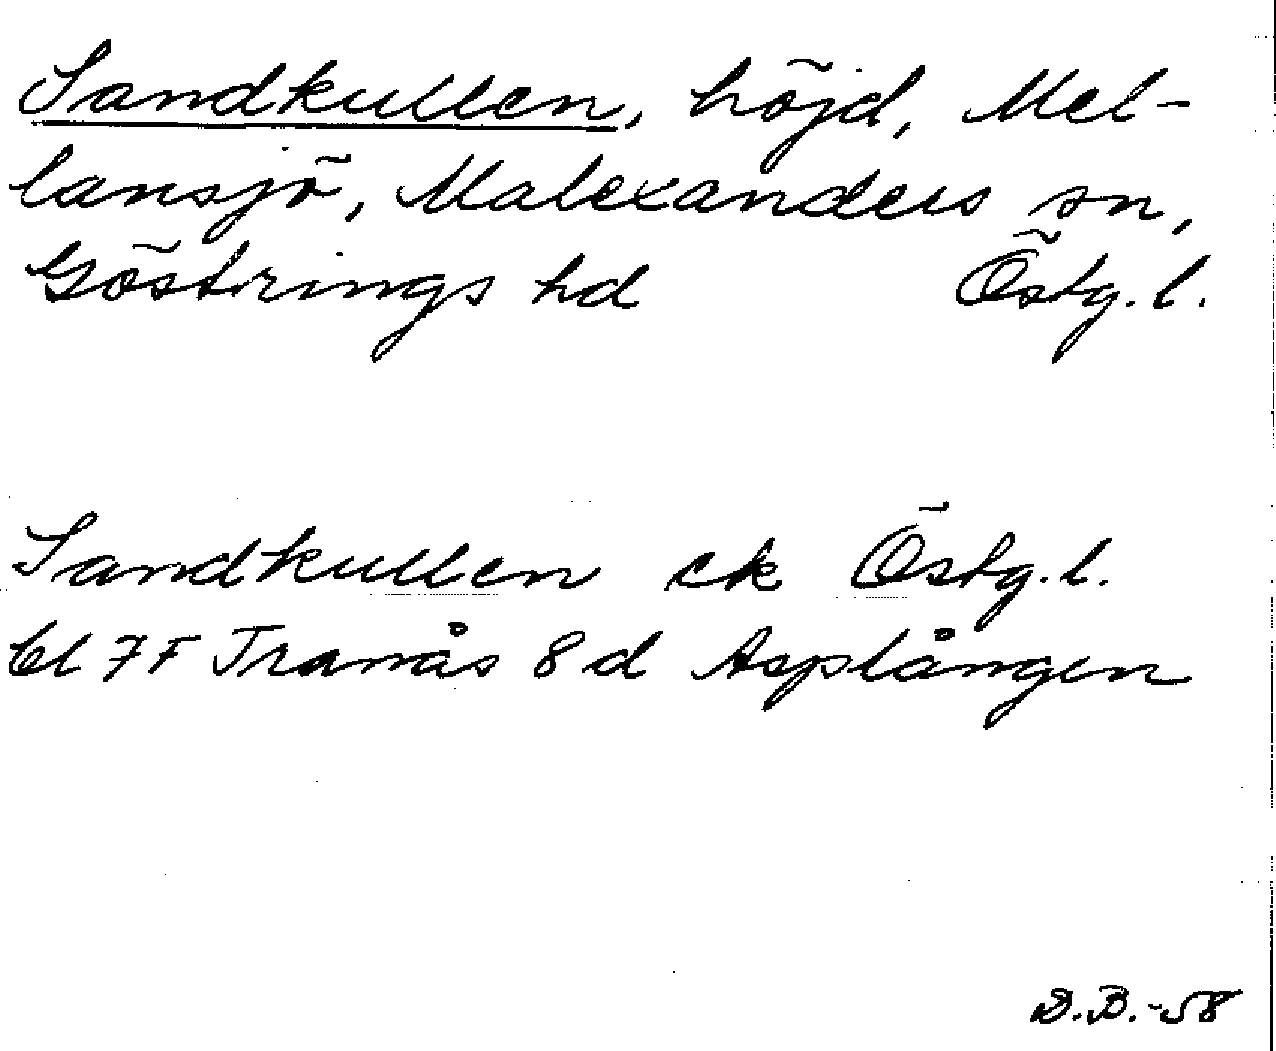 Sandkullen, höjd, Mel-
lansjö, Malexanders sn,
Göstrings hd Östg. l.
Sandkullen ek Östg. l.
bl 7F Tranås 8 d Asplången
D.B.-58